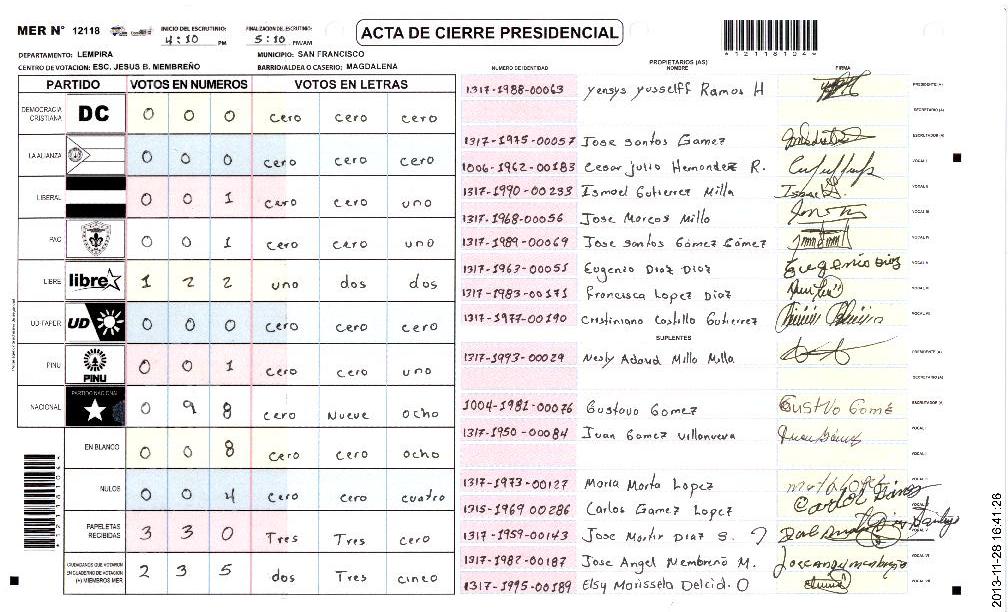 MER N° 12118
INICIO DEL ESCRUTINIO: 4:10 PM
FINALIZACION DEL ESCRUTINIO: 5:10 PM/AM
ACTA DE CIERRE PRESIDENCIAL
DEPARTAMENTO: LEMPIRA
MUNICIPIO: SAN FRANCISCO
CENTRO DE VOTACION: ESC. JESUS B. MEMBREÑO
BARRIO/ALDEA O CASERIO: MAGDALENA
PARTIDO VOTOS EN NUMEROS VOTOS EN LETRAS
DEMOCRACIA CRISTIANA DC 0 0 0 cero cero cero
LA ALIANZA 0 0 0 cero cero cero
LIBERAL 0 0 1 cero cero uno
PAC 0 0 1 cero cero uno
LIBRE libre 1 2 2 uno dos dos
UD-FAPER UD 0 0 0 cero cero cero
PINU PINU 0 0 1 cero cero uno
NACIONAL PARTIDO NACIONAL 0 9 8 cero Nueve ocho
EN BLANCO 0 0 8 cero cero ocho
NULOS 0 0 4 cero cero cuatro
PAPELETAS RECIBIDAS 3 3 0 Tres Tres cero
CIUDADANOS QUE VOTARON EN CUADERNO DE VOTACION (+) MIEMBROS MER 2 3 5 dos Tres cinco
4121181049
PROPIETARIOS (AS)
NUMERO DE IDENTIDAD NOMBRE FIRMA
1317-1988-00063 Yensys Yusselff Ramos H PRESIDENTE (A)
SECRETARIO (A)
1317-1975-00057 Jose santos Gamez ESCRUTADOR (A)
1006-1962-00183 Cesar julio Hernandez R. VOCAL I
1317-1990-00233 Ismael Gutierrez Milla VOCAL II
1317-1968-00056 Jose Marcos Milla VOCAL III
1317-1989-00069 Jose santos Gómez Gámez VOCAL IV
1317-1963-00051 Eugenio Diaz Diaz Eugenio Diaz VOCAL V
1317-1983-00171 Francisca Lopez Diaz VOCAL VI
1317-1977-00190 Cristiniano Castillo Gutierrez VOCAL VII
SUPLENTES
1317-1993-00029 Nesly Adaud Milla Milla PRESIDENTE (A)
SECRETARIO (A)
1004-1981-00076 Gustavo Gomez GustVo Gomé ESCRUTADOR (A)
1317-1950-00084 Juan Gamez villanueva VOCAL I
VOCAL II
1317-1973-00127 Maria Marta Lopez
1315-1969 00286 Carlos Gamez Lopez
1317-1959-00143 Jose Martir Diaz S.
1317-1982-00187 Jose Angel Membreño M. VOCAL VI
1317-1995-00189 Elsy Marissela Delcid. O VOCAL VII
2013-11-28 16:41:26